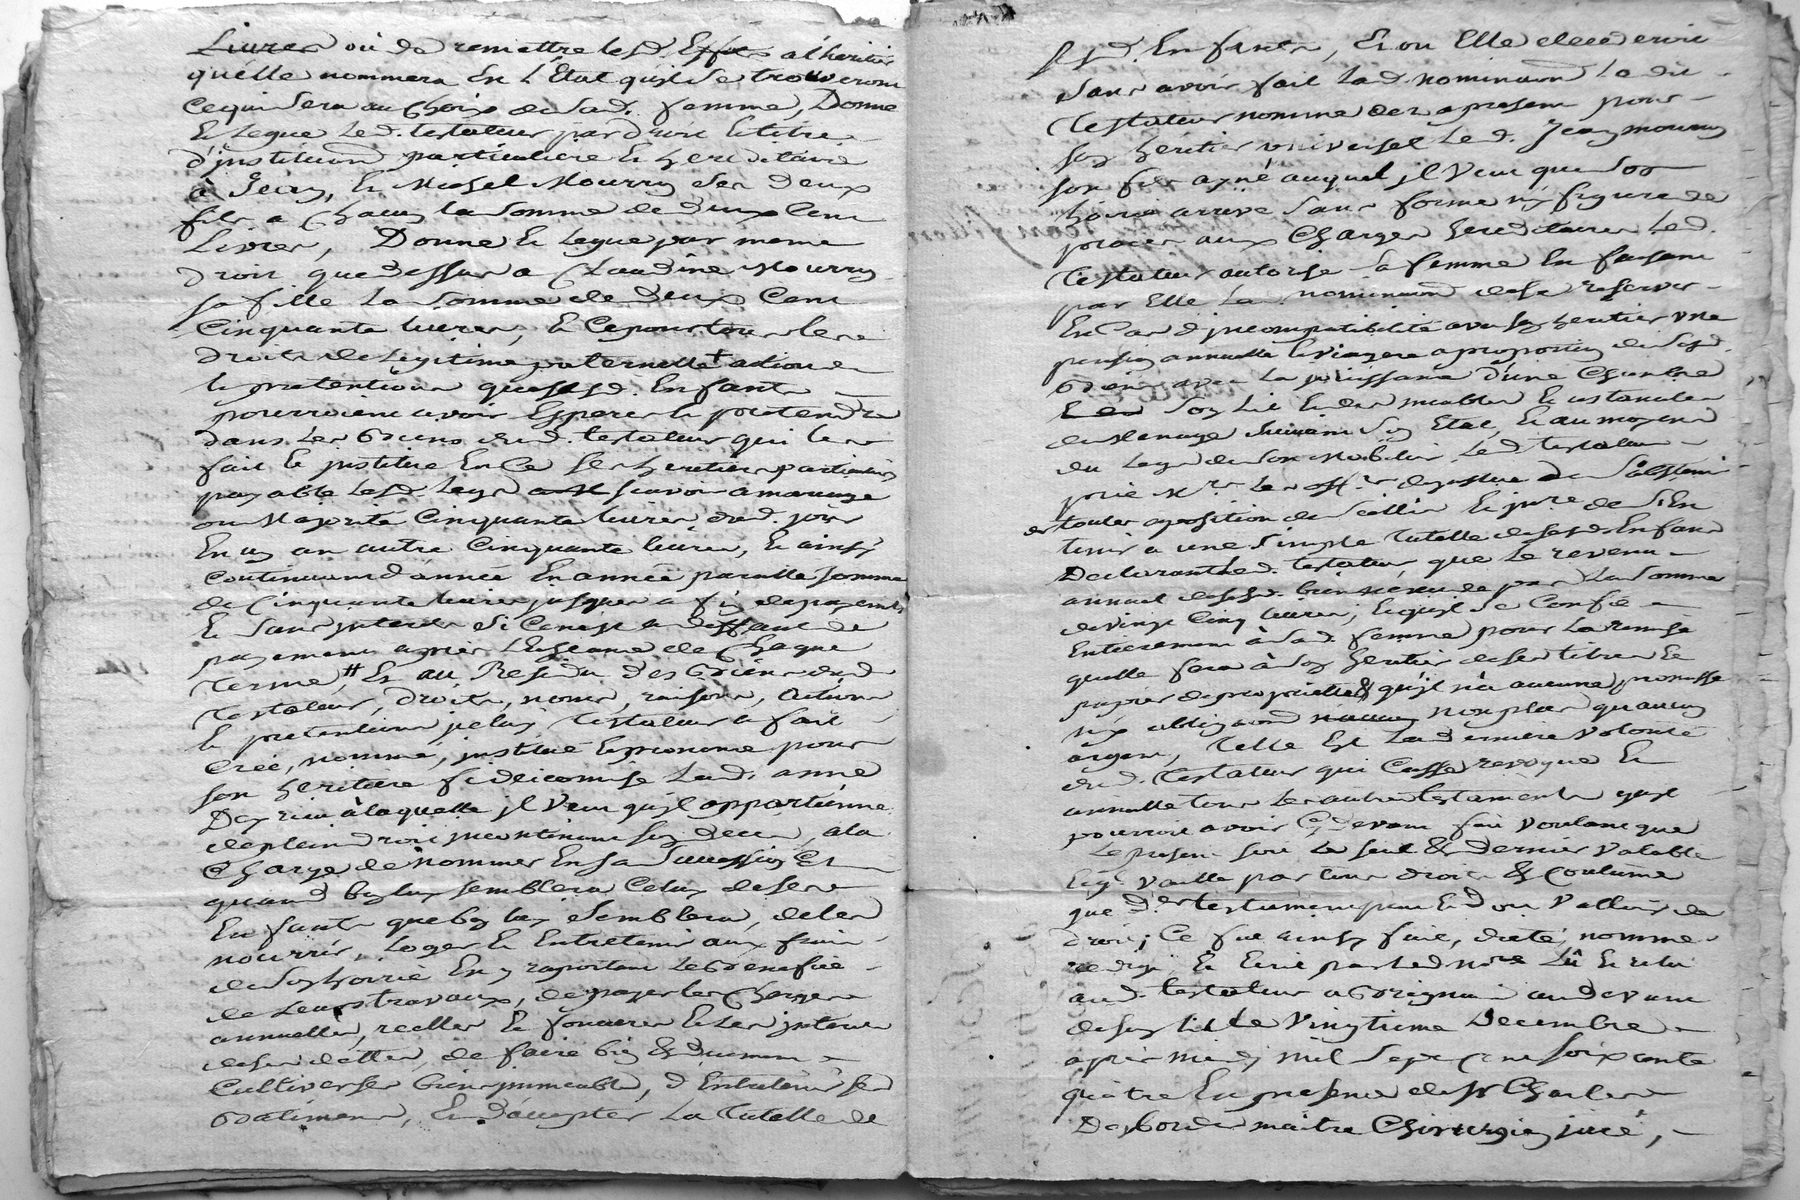 Livres ou de remettre lesd. Effets a l'heritier
qu'elle nommera En l'Etat qu'ils se trouveront
Ce qui sera au Choix de sad. femme, Donne
Et Legue Led. testateur par droit Et titre
d'jnstitution particuliere Et hereditaire
à Jean, Et Michel Mourruy ses deux
fils a Chacun la somme de deux Cent
Livres, Donne Et Legue par meme
Droit que dessus a Claudine Mourruy
sa fille la somme de deux Cent
Cinquante livres, Et Ce pour tous leurs
droits de Legitime paternelle + actions
Et pretentions que sesd. Enfants
pourroient avoir Esperer Et pretendre
dans Les Biens dud. testateur qui les
fait Et jnstitue En Ce ses heritiers particuliers
payable Lesd. Legs scavoir a mariage
ou Majorité Cinquante livres dud. jour
En un an autre Cinquante livres, Et ainsy
Continuant d'année En année pareille somme
de Cinquante livres jusques a fin de payements
Et sans jnterets si Ce n'est a deffaut de
payement apres l'Echeance de Chaque
terme, # Et au Residu des Biens dud.
testateur, droits, noms, raisons, actions
Et pretentions jceluy testateur a fait
Créé, nommé, jnstitué Et prononcé pour
son heritiere fideicomise Lad. anne
à laquelle jl veut qu'jl appartienne
de plein droit jncontinent son deces, a la
Charge de nommer En sa succession Et
quand bon luy semblera Celuy de ses
Enfants que bon luy semblera, de les
nourrir, Loger Et Entretenir aux frais
de son hoirie En y raportant Le Benefice
de Leurs travaux, de payer les Charges
annuelles, reelles Et foncieres Et Les jnterets
de ses dettes, de faire bien & duement
Cultiver ses biens jmmeubles, d'Entretenir ses
Batimens, Et d'accepter La tutelle de
sesd. Enfants, Et ou Elle decederoit
sans avoir fait lad. nomination Ledit
testateur nomme des a present pour
son heritier universel Led. Jean mourruy
son fils ayné auquel jl Veut que son
hoirie arrive sans forme ny figure de
procès aux Charges hereditaires Led.
testateur autorise sa femme En faisant
par Elle La nomination de se reserver
En Cas d'jncompatibilité avec son heritier une
pension annuelle Et viagere a proportion de sesd.
Biens avec La jouissance d'une Chambre
son Lit Et des meubles Et ustanciles
de Menage suivant son Etat, Et au moyen
du Legs de son Mobilier Led. testateur
prie Mrs. Les offrs. de justice de s'abstenir
de toutes aposition de scellés Et jnre. de s'En
tenir a une simple tutelle de sesd. Enfans
Declarant Led. testateur que Le revenu
annuel de sesd. biens n'excede pas La somme
de vingt Cinq livres; Et qu'jl se Confie
Entierement à sad. femme pour La remise
quelle fera à son heritier de ses titres Et
papier de proprietté & qu'jl n'a aucune promesse
ny obligation non plus qu'aucun
argent, Telle Est La derniere Volonté
dud. testateur qui Casse revoque Et
annulle tous Les autres testaments qu'jl
pourroit avoir Cy Devant fait Voulant que
Le present soit Le seul & dernier Valable
Et qu'jl vaille par tous droits & Coutume
que Ds. testament peuvent Et doivent Valloir de
droit; Ce fut ainsy fait, dicté, nommé
redigé Et Ecrit par Led. nore. Lû Et relu
aud. testateur a au devant
de son lit Le Vingtieme Decembre
apres midy mil sept Cent soixante
quatre En presence de sr Charles
Desbordes maitre Chirurgien juré,